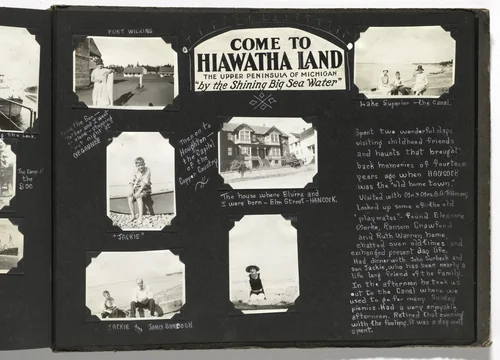 FORT WILKINS
COME TO
HIAWATHA LAND
THE UPPER PENINSULA OF MICHIGAN
"by the Shining Big Sea Water"
Lake Superior - the Canal.
Then on to
Houghton
the Capital
of the
Copper Country
The house where Elvira and
I were born - Elm Street - HANCOCK.
"JACKIE"
JACKIE and JOHN
Spent two wonderful days
visiting childhood friends
and haunts that brought
back memories of fourteen
years ago when HANCOCK
was the "old home town".
Visited with Mr. & Mrs.
Looked up some of the old
"playmates" - found Eleanore
Clarke, Ransom Crawford
and Ruth Warren home,
chatted over old times and
exchanged present day life.
Had dinner with John
and
son Jackie, who has been nearly a
life long friend of the family.
In the afternoon he took us
out to the Canal where we
used to go for many Sunday
picnics. Had a very enjoyable
afternoon. Retired that evening
with the feeling it was a day well
spent.